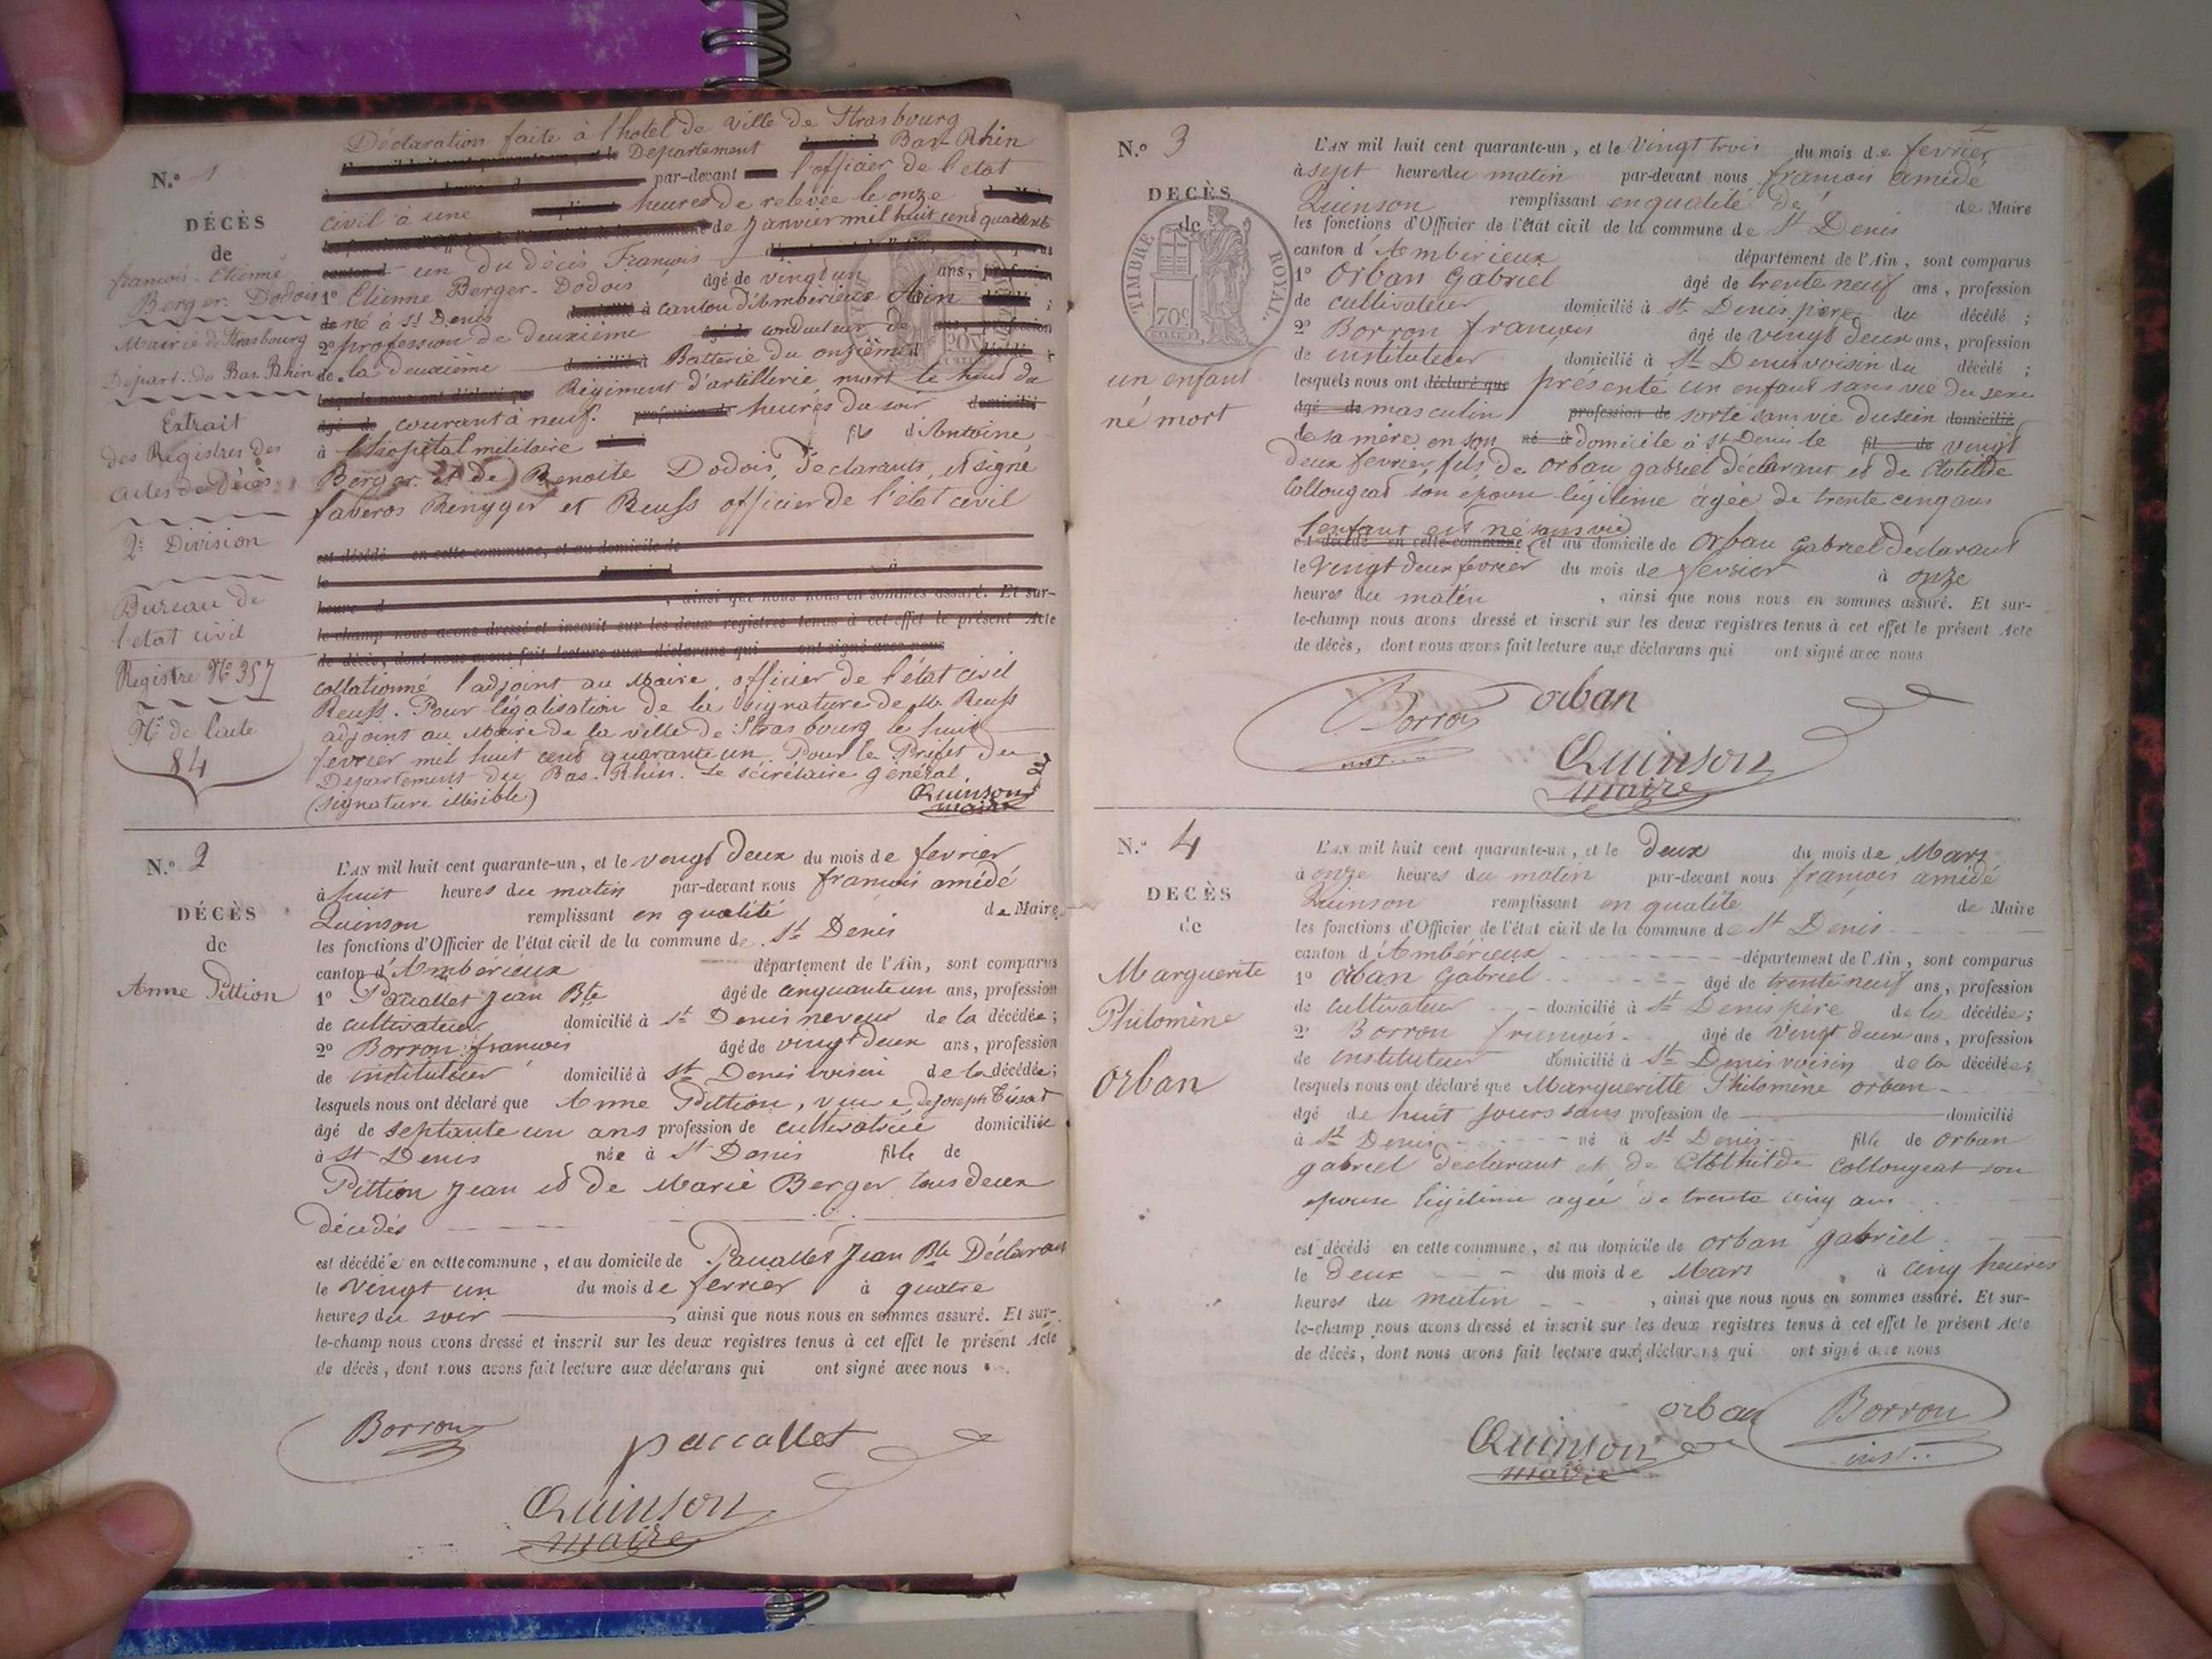 N.o 1
DÉCÈS
de
françois-Etienne
Berger-Dodois
Mairie de Strasbourg
Départ. du Bas-Rhin
Extrait
des Registres des
actes de Décès
2e Division
Bureau de
l'état civil
Registre No 357
No de l'acte
84
Déclaration faite à l'hotel de Ville de Strasbourg
Département Bas-Rhin
par-devant l'officier de l'etat
civil à une heures de relevée le onze
de Janvier mil huit cent quarante
un du décès François
1o Etienne Berger-Dodois âgé de vingt un ans,
né à St Denis canton d'Ambérieux Ain
2o profession de deuxième conducteur de
de la deuxième Batterie du onzième
Régiment d'artillerie mort le heud du
courant à neuf heures du soir
à l'hopital militaire fils d'Antoine
Berger et de Benoite Dodois, déclarants, et signé
faveros Renyger et Reuss officier de l'état civil
est décédé en cette commune, et au domicile de
le
heure d , ainsi que nous nous en sommes assuré. Et sur-
le-champ nous avons dressé et inscrit sur les deux registres tenus à cet effet le présent Acte
de décès, dont nous avons fait lecture aux déclarans qui ont signé avec nous
collationné l'adjoint au Maire, officier de l'état civil
Reuss. Pour légalisation de la signature de Mr Reuss
adjoint au Maire de la ville de Strasbourg le huit
fevrier mil huit cent quarante un. Pour le Préfet du
Departement du Bas-Rhin. Le sécrétaire général.
(signature illisible)
Quinson
maire
N.o 2
DÉCÈS
de
Anne Pittion
L'AN mil huit cent quarante-un, et le vingt deux du mois de fevrier
à huit heures du matin par-devant nous francois amédé
Quinson remplissant en qualité de Maire
les fonctions d'Officier de l'état civil de la commune de St Denis
canton d'Ambérieux département de l'Ain, sont comparus
1o Paccallet Jean Bte âgé de cinquante un ans, profession
de cultivateur domicilié à St Denis neveu de la décédée;
2o Borron francois âgé de vingt deux ans, profession
de instituteur domicilié à St Denis voisin de la décédée;
lesquels nous ont déclaré que Anne Pittion, veuve de joseph Tissot
âgé de septante un ans profession de cultivatrice domiciliée
à St Denis née à St Denis fille de
Pittion Jean et de Marie Berger tous deux
décédés
est décédée en cette commune, et au domicile de Paccallet Jean Bte Déclarant
le vingt un du mois de fevrier à quatre
heures du soir , ainsi que nous nous en sommes assuré. Et sur-
le-champ nous avons dressé et inscrit sur les deux registres tenus à cet effet le présent Acte
de décès, dont nous avons fait lecture aux déclarans qui ont signé avec nous
Borron
paccallet
Quinson
maire
N.o 3
DECÈS
de
TIMBRE ROYAL.
70c
un enfant
né mort
L'AN mil huit cent quarante-un, et le vingt trois du mois de fevrier
à sept heures du matin par-devant nous francois amédé
Quinson remplissant en qualité de de Maire
les fonctions d'Officier de l'état civil de la commune de St Denis
canton d'Ambérieux département de l'Ain, sont comparus
1o Orban Gabriel âgé de trente neuf ans, profession
de cultivateur domicilié à St Denis père du décédé;
2o Borron francois âgé de vingt deux ans, profession
de instituteur domicilié à St Denis voisin du décédé;
lesquels nous ont déclaré que présenté un enfant sans vie du sexe
âgé de masculin profession de sorte sans vie du sein domicilié
de sa mère en son né à domicile à St Denis le fil de vingt
deux fevrier, fils de Orban gabriel déclarant et de Clotilde
Collongeat son épouse légitime agée de trente cinq ans
l'enfant est né sans vie
est décédé en cette commune et au domicile de Orban Gabriel déclarant
le vingt deux fevrier du mois de fevrier à onze
heures du matin , ainsi que nous nous en sommes assuré. Et sur-
le-champ nous avons dressé et inscrit sur les deux registres tenus à cet effet le présent Acte
de décès, dont nous avons fait lecture aux déclarans qui ont signé avec nous
Borron
inst...
orban
Quinson
maire
N.o 4
DECÈS
de
Marguerite
Philomène
Orban
L'AN mil huit cent quarante-un, et le deux du mois de Mars
à onze heures du matin par-devant nous francois amédé
Quinson remplissant en qualité de Maire
les fonctions d'Officier de l'état civil de la commune de St Denis
canton d'Ambérieux département de l'Ain, sont comparus
1o Orban Gabriel âgé de trente neuf ans, profession
de cultivateur domicilié à St Denis père de la décédée;
2o Borron francois âgé de vingt deux ans, profession
de instituteur domicilié à St Denis voisin de la décédée;
lesquels nous ont déclaré que Margueritte Philomène orban
âgé de huit jours sans profession de domicilié
à St Denis né à St Denis fille de Orban
gabriel déclarant et de Clothilde Collongeat son
epouse légitime agée de trente cinq ans
est décédé en cette commune, et au domicile de orban gabriel
le deux du mois de Mars à cinq heures
heures du matin , ainsi que nous nous en sommes assuré. Et sur-
le-champ nous avons dressé et inscrit sur les deux registres tenus à cet effet le présent Acte
de décès, dont nous avons fait lecture aux déclarans qui ont signé avec nous
orban
Borron
inst...
Quinson
maire